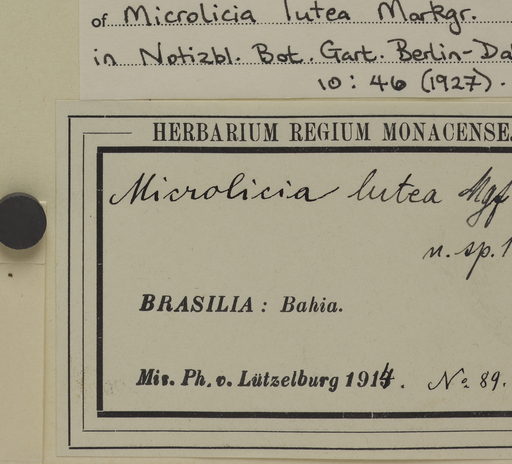 of Microlicia lutea Markgr.
in Notizbl. Bot. Gart. Berlin-Da
10: 46 (1927).
HERBARIUM REGIUM MONACENSE.
Microlicia lutea Mgf
n. sp. !
BRASILIA: Bahia.
Mis. Ph. v. Lützelburg 1914. No. 89.